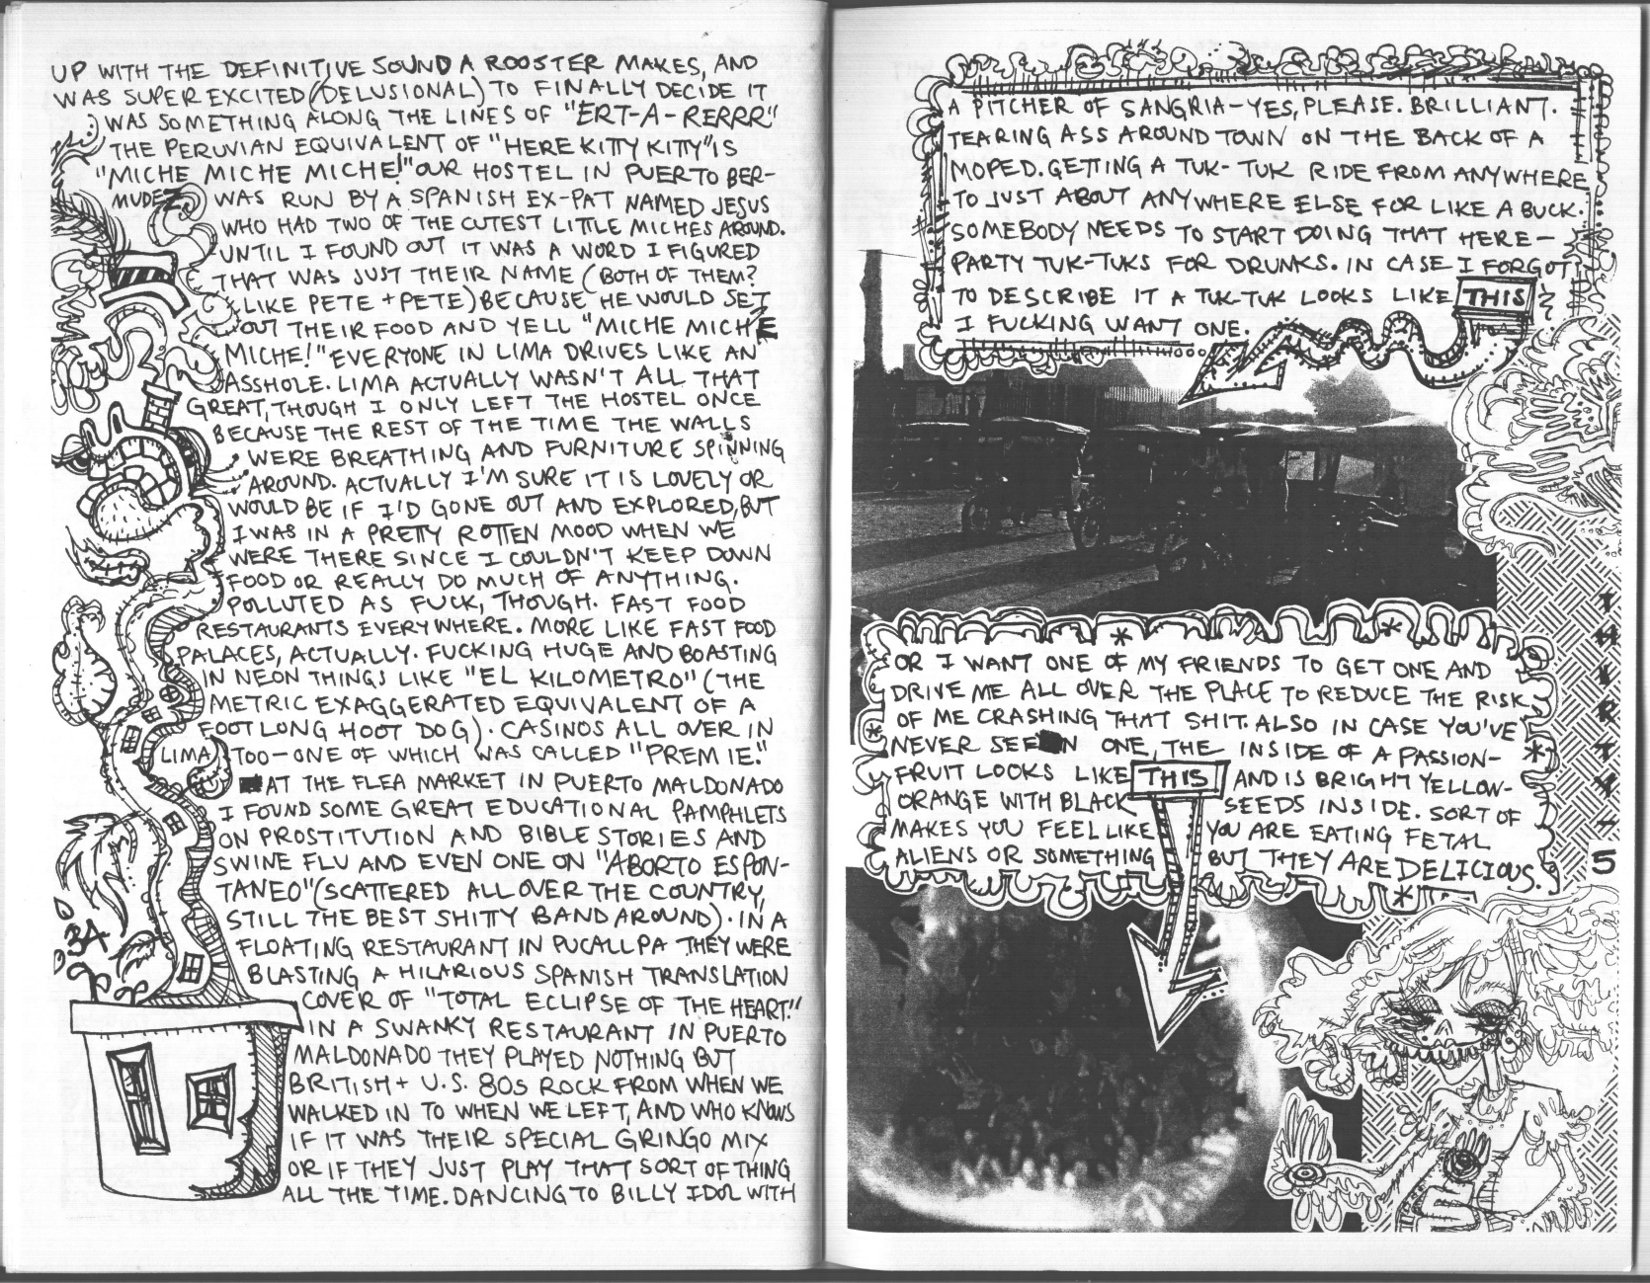 UP WITH THE DEFINITIVE SOUND A ROOSTER MAKES, AND
WAS SUPER EXCITED (DELUSIONAL) TO FINALLY DECIDE IT
WAS SOMETHING ALONG THE LINES OF "ERT-A-RERRR"
THE PERUVIAN EQUIVALENT OF "HERE KITTY KITTY" IS
"MICHE MICHE MICHE!" OUR HOSTEL IN PUERTO BER-
MUDEZ WAS RUN BY A SPANISH EX-PAT NAMED JESUS
WHO HAD TWO OF THE CUTEST LITTLE MICHES AROUND.
UNTIL I FOUND OUT IT WAS A WORD I FIGURED
THAT WAS JUST THEIR NAME (BOTH OF THEM?
LIKE PETE + PETE) BECAUSE HE WOULD SET
OUT THEIR FOOD AND YELL "MICHE MICHE
MICHE!" EVERYONE IN LIMA DRIVES LIKE AN
ASSHOLE. LIMA ACTUALLY WASN'T ALL THAT
GREAT, THOUGH I ONLY LEFT THE HOSTEL ONCE
BECAUSE THE REST OF THE TIME THE WALLS
WERE BREATHING AND FURNITURE SPINNING
AROUND. ACTUALLY I'M SURE IT IS LOVELY OR
WOULD BE IF I'D GONE OUT AND EXPLORED, BUT
I WAS IN A PRETTY ROTTEN MOOD WHEN WE
WERE THERE SINCE I COULDN'T KEEP DOWN
FOOD OR REALLY DO MUCH OF ANYTHING.
POLLUTED AS FUCK, THOUGH. FAST FOOD
RESTAURANTS EVERYWHERE. MORE LIKE FAST FOOD
PALACES, ACTUALLY. FUCKING HUGE AND BOASTING
IN NEON THINGS LIKE "EL KILOMETRO" (THE
METRIC EXAGGERATED EQUIVALENT OF A
FOOTLONG HOOT DOG). CASINOS ALL OVER IN
LIMA TOO-ONE OF WHICH WAS CALLED "PREMIE."
AT THE FLEA MARKET IN PUERTO MALDONADO
I FOUND SOME GREAT EDUCATIONAL PAMPHLETS
ON PROSTITUTION AND BIBLE STORIES AND
SWINE FLU AND EVEN ONE ON "ABORTO ESPON-
TANEO" (SCATTERED ALL OVER THE COUNTRY,
STILL THE BEST SHITTY BAND AROUND). IN A
FLOATING RESTAURANT IN PUCALLPA THEY WERE
BLASTING A HILARIOUS SPANISH TRANSLATION
COVER OF "TOTAL ECLIPSE OF THE HEART."
IN A SWANKY RESTAURANT IN PUERTO
MALDONADO THEY PLAYED NOTHING BUT
BRITISH + U.S. 80s ROCK FROM WHEN WE
WALKED IN TO WHEN WE LEFT, AND WHO KNOWS
IF IT WAS THEIR SPECIAL GRINGO MIX
OR IF THEY JUST PLAY THAT SORT OF THING
ALL THE TIME. DANCING TO BILLY IDOL WITH
34
A PITCHER OF SANGRIA-YES, PLEASE. BRILLIANT.
TEARING ASS AROUND TOWN ON THE BACK OF A
MOPED. GETTING A TUK-TUK RIDE FROM ANYWHERE
TO JUST ABOUT ANYWHERE ELSE FOR LIKE A BUCK.
SOMEBODY NEEDS TO START DOING THAT HERE-
PARTY TUK-TUKS FOR DRUNKS. IN CASE I FORGOT
TO DESCRIBE IT A TUK-TUK LOOKS LIKE THIS
I FUCKING WANT ONE.
OR I WANT ONE OF MY FRIENDS TO GET ONE AND
DRIVE ME ALL OVER THE PLACE TO REDUCE THE RISK
OF ME CRASHING THAT SHIT. ALSO IN CASE YOU'VE
NEVER SEEN ONE, THE INSIDE OF A PASSION-
FRUIT LOOKS LIKE THIS AND IS BRIGHT YELLOW-
ORANGE WITH BLACK SEEDS INSIDE. SORT OF
MAKES YOU FEEL LIKE YOU ARE EATING FETAL
ALIENS OR SOMETHING BUT THEY ARE DELICIOUS.
THIRTY-5